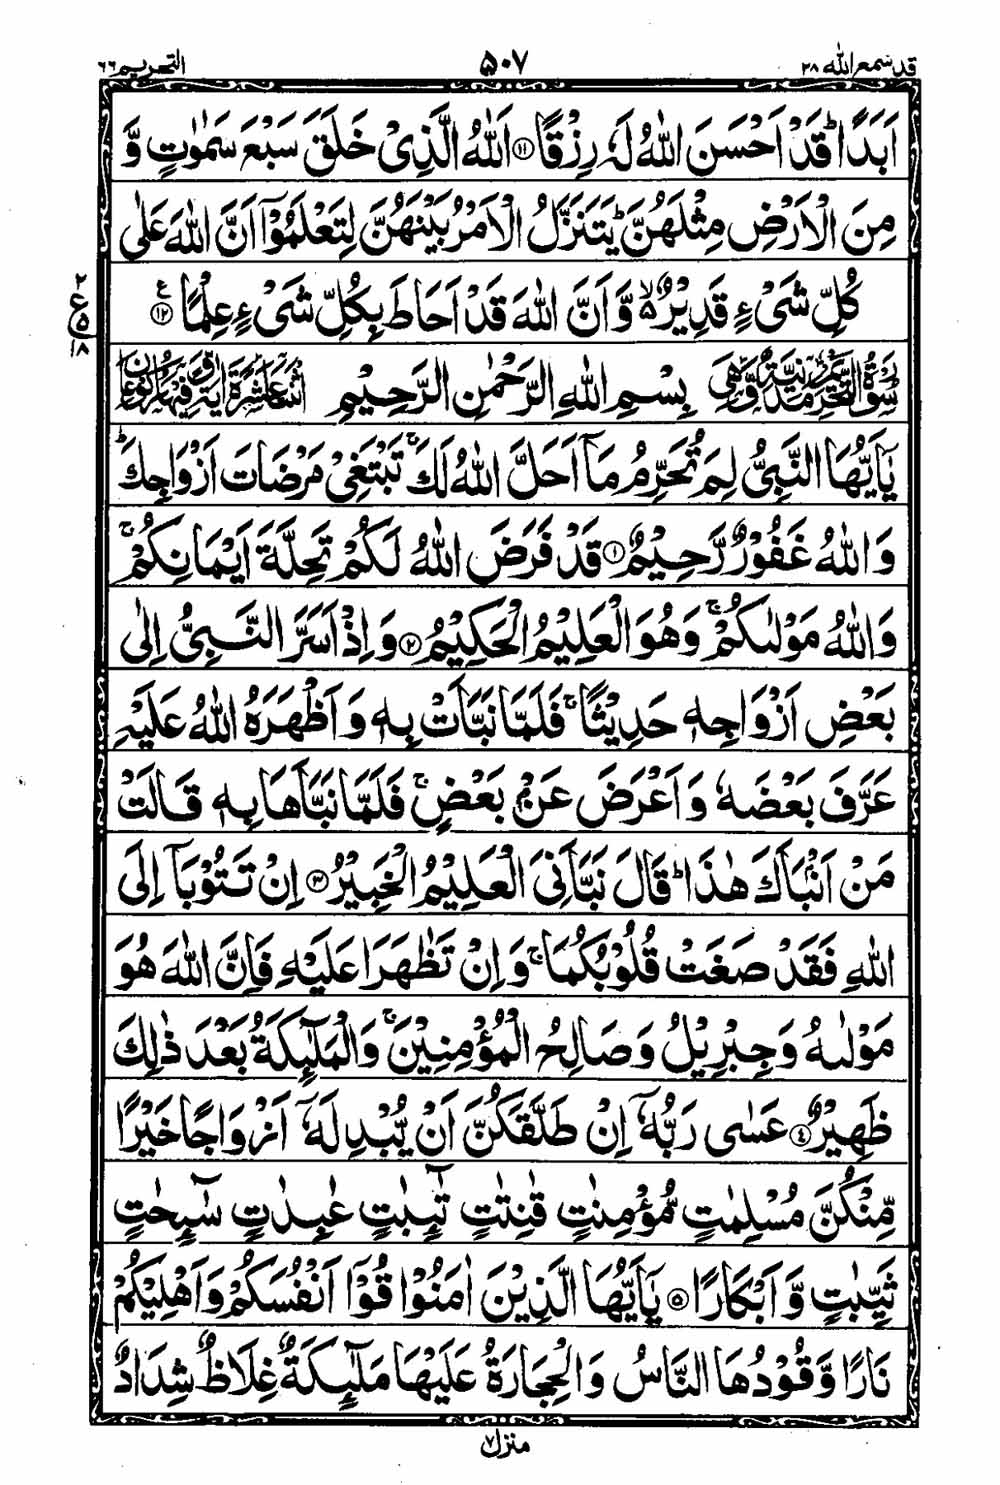 قد سمع الله ٢٨ ۵۰۷ التحريم ٦٦
اَبَدًا ؕ قَدْ اَحْسَنَ اللّٰهُ لَهٗ رِزْقًا ۝۱۱ اَللّٰهُ الَّذِىْ خَلَقَ سَبْعَ سَمٰوٰتٍ وَّ
مِنَ الْاَرْضِ مِثْلَهُنَّ ؕ يَتَنَزَّلُ الْاَمْرُ بَيْنَهُنَّ لِتَعْلَمُوْۤا اَنَّ اللّٰهَ عَلٰى
كُلِّ شَىْءٍ قَدِيْرٌ ۙ۬ وَّ اَنَّ اللّٰهَ قَدْ اَحَاطَ بِكُلِّ شَىْءٍ عِلْمًا ۝۱۲ ع
٢ ع ٥ ١٨
سُوْرَةُ التَّحْرِيْمِ مَدَنِيَّةٌ وَّهِىَ بِسْمِ اللّٰهِ الرَّحْمٰنِ الرَّحِيْمِ اثْنَتَا عَشْرَةَ اٰيَةً وَّفِيْهَا رُكُوْعَانِ
يٰۤاَيُّهَا النَّبِىُّ لِمَ تُحَرِّمُ مَاۤ اَحَلَّ اللّٰهُ لَكَ ۚ تَبْتَغِىْ مَرْضَاتَ اَزْوَاجِكَ ؕ
وَاللّٰهُ غَفُوْرٌ رَّحِيْمٌ ۝۱ قَدْ فَرَضَ اللّٰهُ لَكُمْ تَحِلَّةَ اَيْمَانِكُمْ ۚ
وَاللّٰهُ مَوْلٰىكُمْ ۚ وَهُوَ الْعَلِيْمُ الْحَكِيْمُ ۝۲ وَاِذْ اَسَرَّ النَّبِىُّ اِلٰى
بَعْضِ اَزْوَاجِهٖ حَدِيْثًا ۚ فَلَمَّا نَبَّاَتْ بِهٖ وَاَظْهَرَهُ اللّٰهُ عَلَيْهِ
عَرَّفَ بَعْضَهٗ وَاَعْرَضَ عَنْۢ بَعْضٍ ۚ فَلَمَّا نَبَّاَهَا بِهٖ قَالَتْ
مَنْ اَنْۢبَاَكَ هٰذَا ؕ قَالَ نَبَّاَنِىَ الْعَلِيْمُ الْخَبِيْرُ ۝۳ اِنْ تَتُوْبَاۤ اِلَى
اللّٰهِ فَقَدْ صَغَتْ قُلُوْبُكُمَا ۚ وَاِنْ تَظٰهَرَا عَلَيْهِ فَاِنَّ اللّٰهَ هُوَ
مَوْلٰىهُ وَجِبْرِيْلُ وَصَالِحُ الْمُؤْمِنِيْنَ ۚ وَالْمَلٰٓئِكَةُ بَعْدَ ذٰلِكَ
ظَهِيْرٌ ۝٤ عَسٰى رَبُّهٗۤ اِنْ طَلَّقَكُنَّ اَنْ يُّبْدِلَهٗۤ اَزْوَاجًا خَيْرًا
مِّنْكُنَّ مُسْلِمٰتٍ مُّؤْمِنٰتٍ قٰنِتٰتٍ تٰٓئِبٰتٍ عٰبِدٰتٍ سٰٓئِحٰتٍ
ثَيِّبٰتٍ وَّاَبْكَارًا ۝۵ يٰۤاَيُّهَا الَّذِيْنَ اٰمَنُوْا قُوْۤا اَنْفُسَكُمْ وَاَهْلِيْكُمْ
نَارًا وَّقُوْدُهَا النَّاسُ وَالْحِجَارَةُ عَلَيْهَا مَلٰٓئِكَةٌ غِلَاظٌ شِدَادٌ
منزل ٧